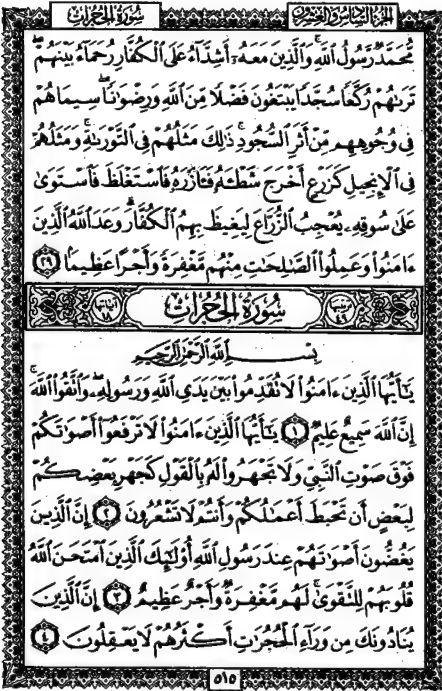 سُورَةُ الحُجُرَاتِ
الجُزْءُ السَّادِسُ وَالعِشْرُونَ
مُّحَمَّدٌ رَّسُولُ ٱللَّهِ ۚ وَٱلَّذِينَ مَعَهُۥٓ أَشِدَّآءُ عَلَى ٱلْكُفَّارِ رُحَمَآءُ بَيْنَهُمْ ۖ
تَرَىٰهُمْ رُكَّعًا سُجَّدًا يَبْتَغُونَ فَضْلًا مِّنَ ٱللَّهِ وَرِضْوَٰنًا ۖ سِيمَاهُمْ
فِى وُجُوهِهِم مِّنْ أَثَرِ ٱلسُّجُودِ ۚ ذَٰلِكَ مَثَلُهُمْ فِى ٱلتَّوْرَىٰةِ ۚ وَمَثَلُهُمْ
فِى ٱلْإِنجِيلِ كَزَرْعٍ أَخْرَجَ شَطْـَٔهُۥ فَـَٔازَرَهُۥ فَٱسْتَغْلَظَ فَٱسْتَوَىٰ
عَلَىٰ سُوقِهِۦ يُعْجِبُ ٱلزُّرَّاعَ لِيَغِيظَ بِهِمُ ٱلْكُفَّارَ ۗ وَعَدَ ٱللَّهُ ٱلَّذِينَ
ءَامَنُوا۟ وَعَمِلُوا۟ ٱلصَّٰلِحَٰتِ مِنْهُم مَّغْفِرَةً وَأَجْرًا عَظِيمًۢا ٢٩
سُورَةُ الحُجُرَاتِ
ترتيبها ٤٩
آياتها ١٨
بِسْمِ ٱللَّهِ ٱلرَّحْمَٰنِ ٱلرَّحِيمِ
يَٰٓأَيُّهَا ٱلَّذِينَ ءَامَنُوا۟ لَا تُقَدِّمُوا۟ بَيْنَ يَدَىِ ٱللَّهِ وَرَسُولِهِۦ ۖ وَٱتَّقُوا۟ ٱللَّهَ ۚ
إِنَّ ٱللَّهَ سَمِيعٌ عَلِيمٌ ١ يَٰٓأَيُّهَا ٱلَّذِينَ ءَامَنُوا۟ لَا تَرْفَعُوٓا۟ أَصْوَٰتَكُمْ
فَوْقَ صَوْتِ ٱلنَّبِىِّ وَلَا تَجْهَرُوا۟ لَهُۥ بِٱلْقَوْلِ كَجَهْرِ بَعْضِكُمْ
لِبَعْضٍ أَن تَحْبَطَ أَعْمَٰلُكُمْ وَأَنتُمْ لَا تَشْعُرُونَ ٢ إِنَّ ٱلَّذِينَ
يَغُضُّونَ أَصْوَٰتَهُمْ عِندَ رَسُولِ ٱللَّهِ أُو۟لَٰٓئِكَ ٱلَّذِينَ ٱمْتَحَنَ ٱللَّهُ
قُلُوبَهُمْ لِلتَّقْوَىٰ ۚ لَهُم مَّغْفِرَةٌ وَأَجْرٌ عَظِيمٌ ٣ إِنَّ ٱلَّذِينَ
يُنَادُونَكَ مِن وَرَآءِ ٱلْحُجُرَٰتِ أَكْثَرُهُمْ لَا يَعْقِلُونَ ٤
٥١٥